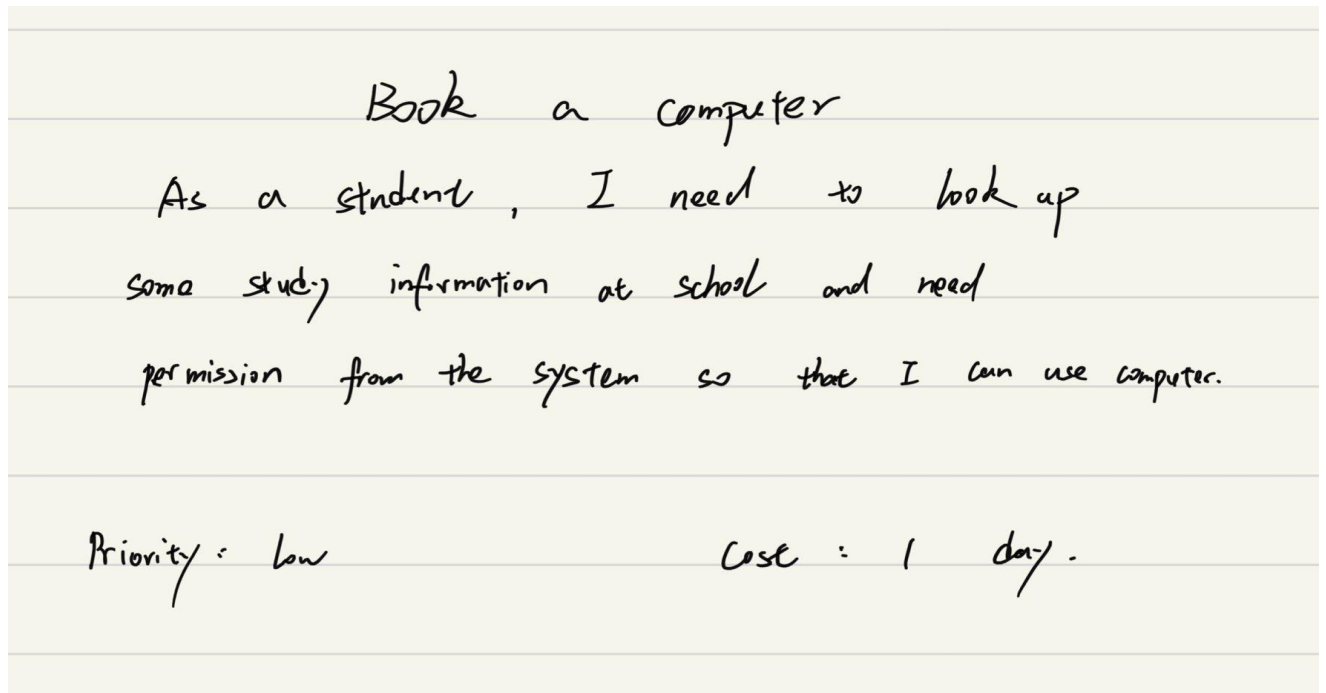 Book a computer
As a student, I need to look up
some study information at school and need
permission from the system so that I can use computer.
Priority: low
Cost: 1 day.